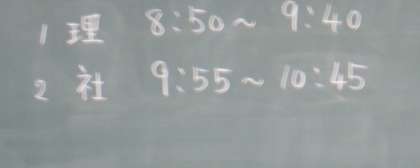 1 理 8:50~ 9:40
2 社 9:55~10:45